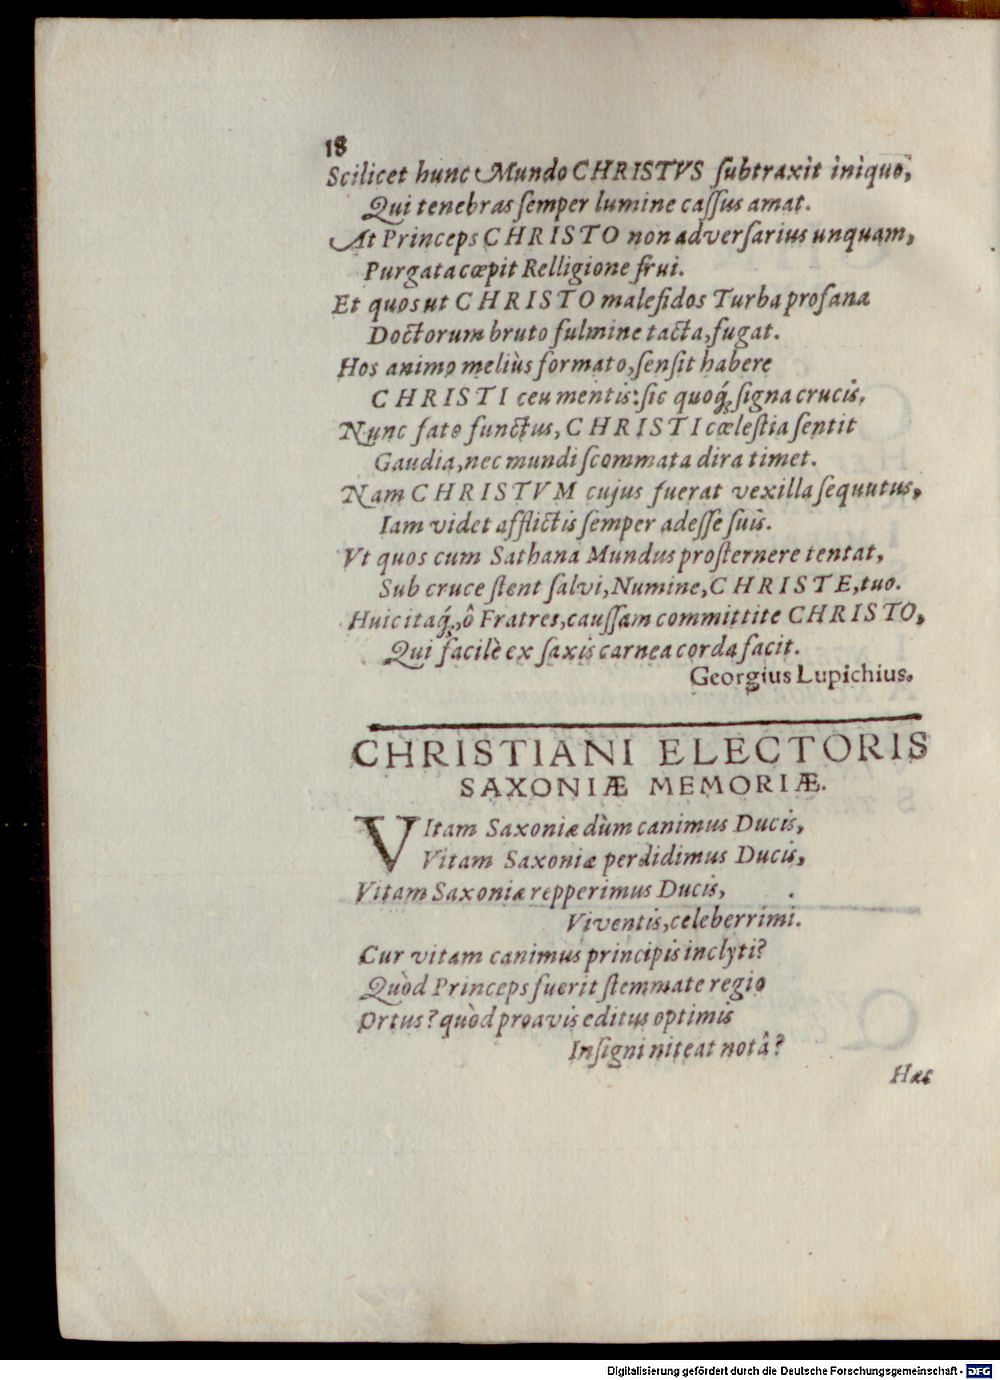 18
Scilicet hunc Mundo CHRISTVS ſubtraxit iniquo,
Qui tenebras ſemper lumine caſſus amat.
At Princeps CHRISTO non adverſarius unquam,
Purgata cœpit Relligione frui.
Et quos ut CHRISTO malefidos Turba profana
Doctorum bruto fulmine tacta, fugat.
Hos animo meliùs formato, ſenſit habere
CHRISTI ceu mentis: ſic quoq́; ſigna crucis.
Nunc fato functus, CHRISTI cœleſtia ſentit
Gaudia, nec mundi ſcommata dira timet.
Nam CHRISTVM cujus fuerat vexilla ſequutus,
Iam videt afflictis ſemper adeſſe ſuis.
Vt quos cum Sathana Mundus proſternere tentat,
Sub cruce ſtent ſalvi, Numine, CHRISTE, tuo.
Huic itaq́;, ô Fratres, cauſſam committite CHRISTO,
Qui facilè ex ſaxis carnea corda facit.
Georgius Lupichius.
CHRISTIANI ELECTORIS
SAXONIÆ MEMORIÆ.
VItam Saxoniæ dùm canimus Ducis,
Vitam Saxoniæ perdidimus Ducis,
Vitam Saxoniæ repperimus Ducis,
Viventis, celeberrimi.
Cur vitam canimus principis inclyti?
Quòd Princeps fuerit ſtemmate regio
Ortus? quòd proavis editus optimis
Inſigni niteat notâ?
Hæc
Digitalisierung gefördert durch die Deutsche Forschungsgemeinschaft - DFG